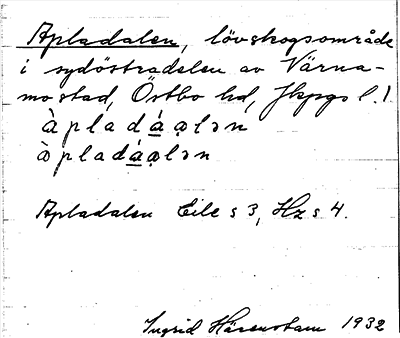 Apladalen, lövskogsområde
i sydöstra delen av Värna-
mo stad, Östbo hd, Jkpgs l.
àplad
àplad
Apladalen Eile s 3, Hz s 4.
Ingrid Härenstam 1932